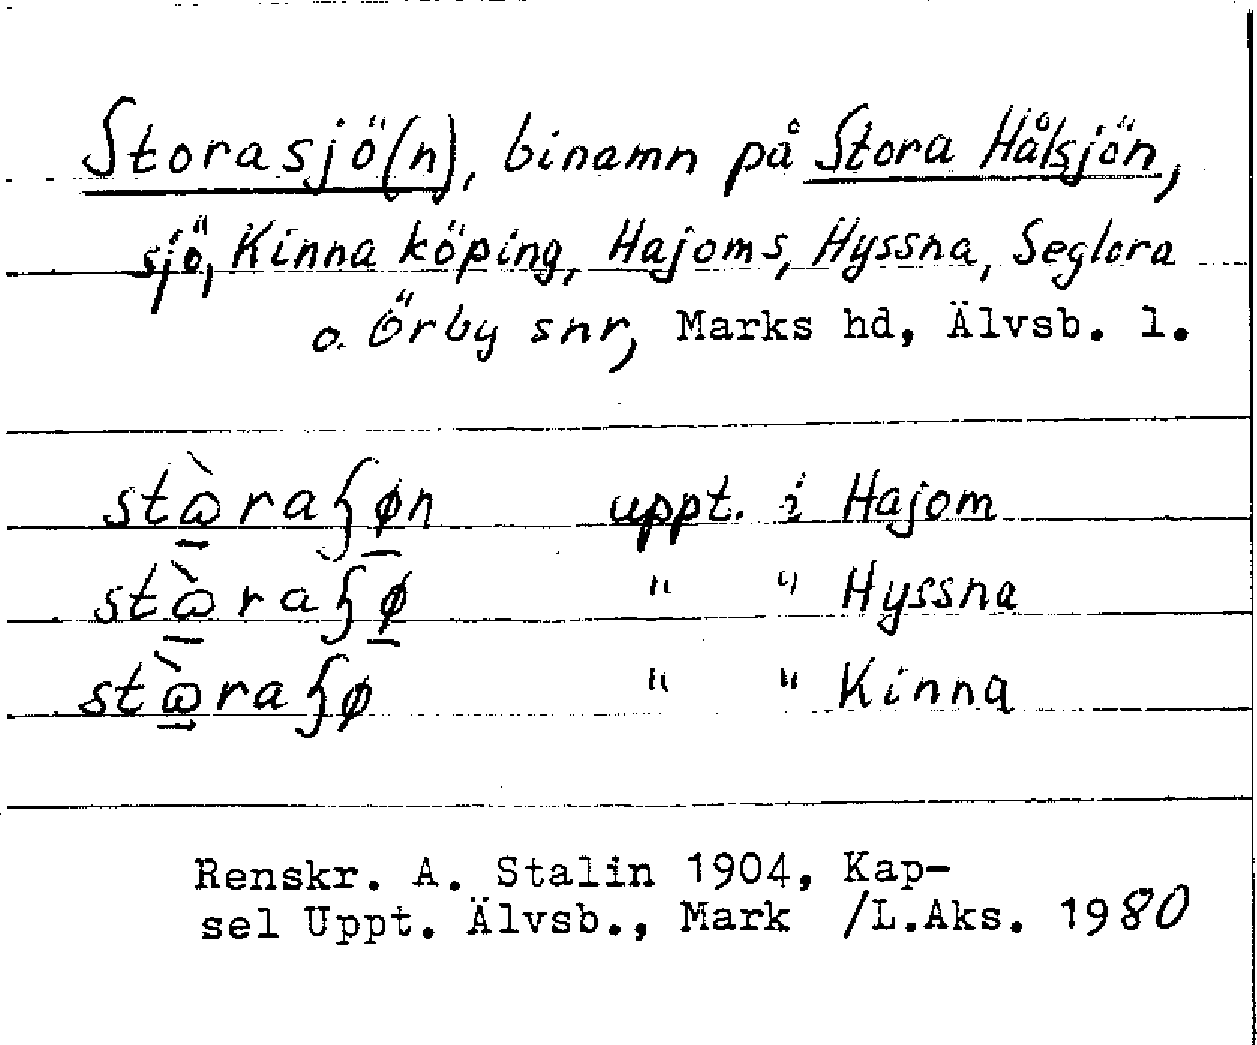 Storasjö(n), binamn på Stora Hålsjön,
sjö, Kinna köping, Hajoms, Hyssna, Seglora
o. Örby snr, Marks hd, Älvsb. l.
uppt. i Hajom
" " Hyssna
" " Kinna
Renskr. A. Stalin 1904, Kap-
sel Uppt. Älvsb., Mark /L.Aks. 1980